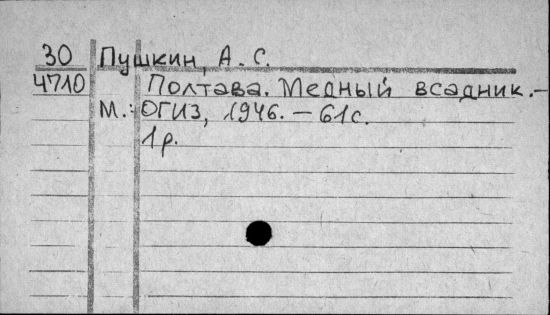 30 Пушкин, А. С.
4710 Полтава. Медный всадник.-
М.: ОГИЗ, 1946. - 61с.
1р.